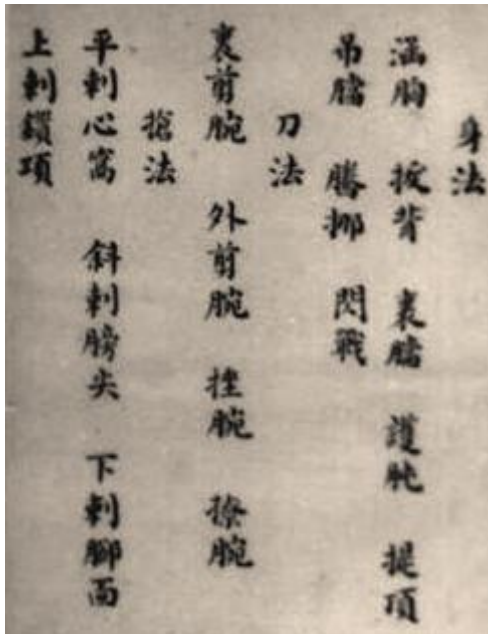 身法
涵胸 拔背 裹 護肫 提項
吊 騰挪 閃戰
刀法
裏剪腕 外剪腕 挫腕 撩腕
槍法
平刺心窩 斜刺膀尖 下刺腳面
上刺鎖項